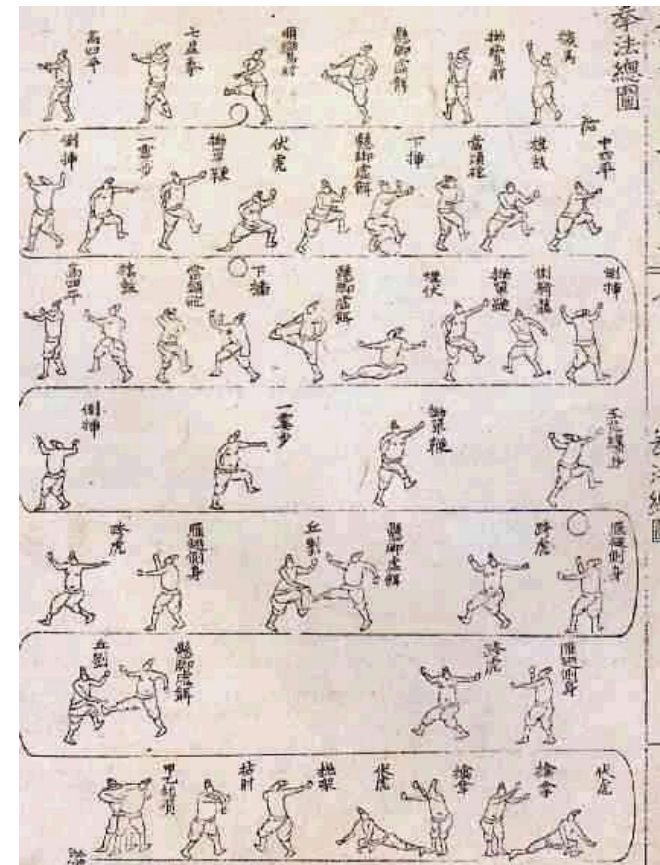 拳法總圖
探馬
拗鸞肘
懸脚虛餌
順鸞肘
七星拳
高四平
中四平
旗鼓
當頭砲
下揷
懸脚虛餌
伏虎
拗單鞭
一霎步
倒揷
倒揷
倒騎龍
拗單鞭
埋伏
懸脚虛餌
下揷
當頭砲
旗鼓
高四平
五花纏身
拗單鞭
一霎步
倒揷
雁翅側身
跨虎
懸脚虛餌
丘劉
雁翅側身
跨虎
雁翅側身
跨虎
懸脚虛餌
丘劉
伏虎
擒拿
擒拿
伏虎
拋架
拈肘
甲乙相負